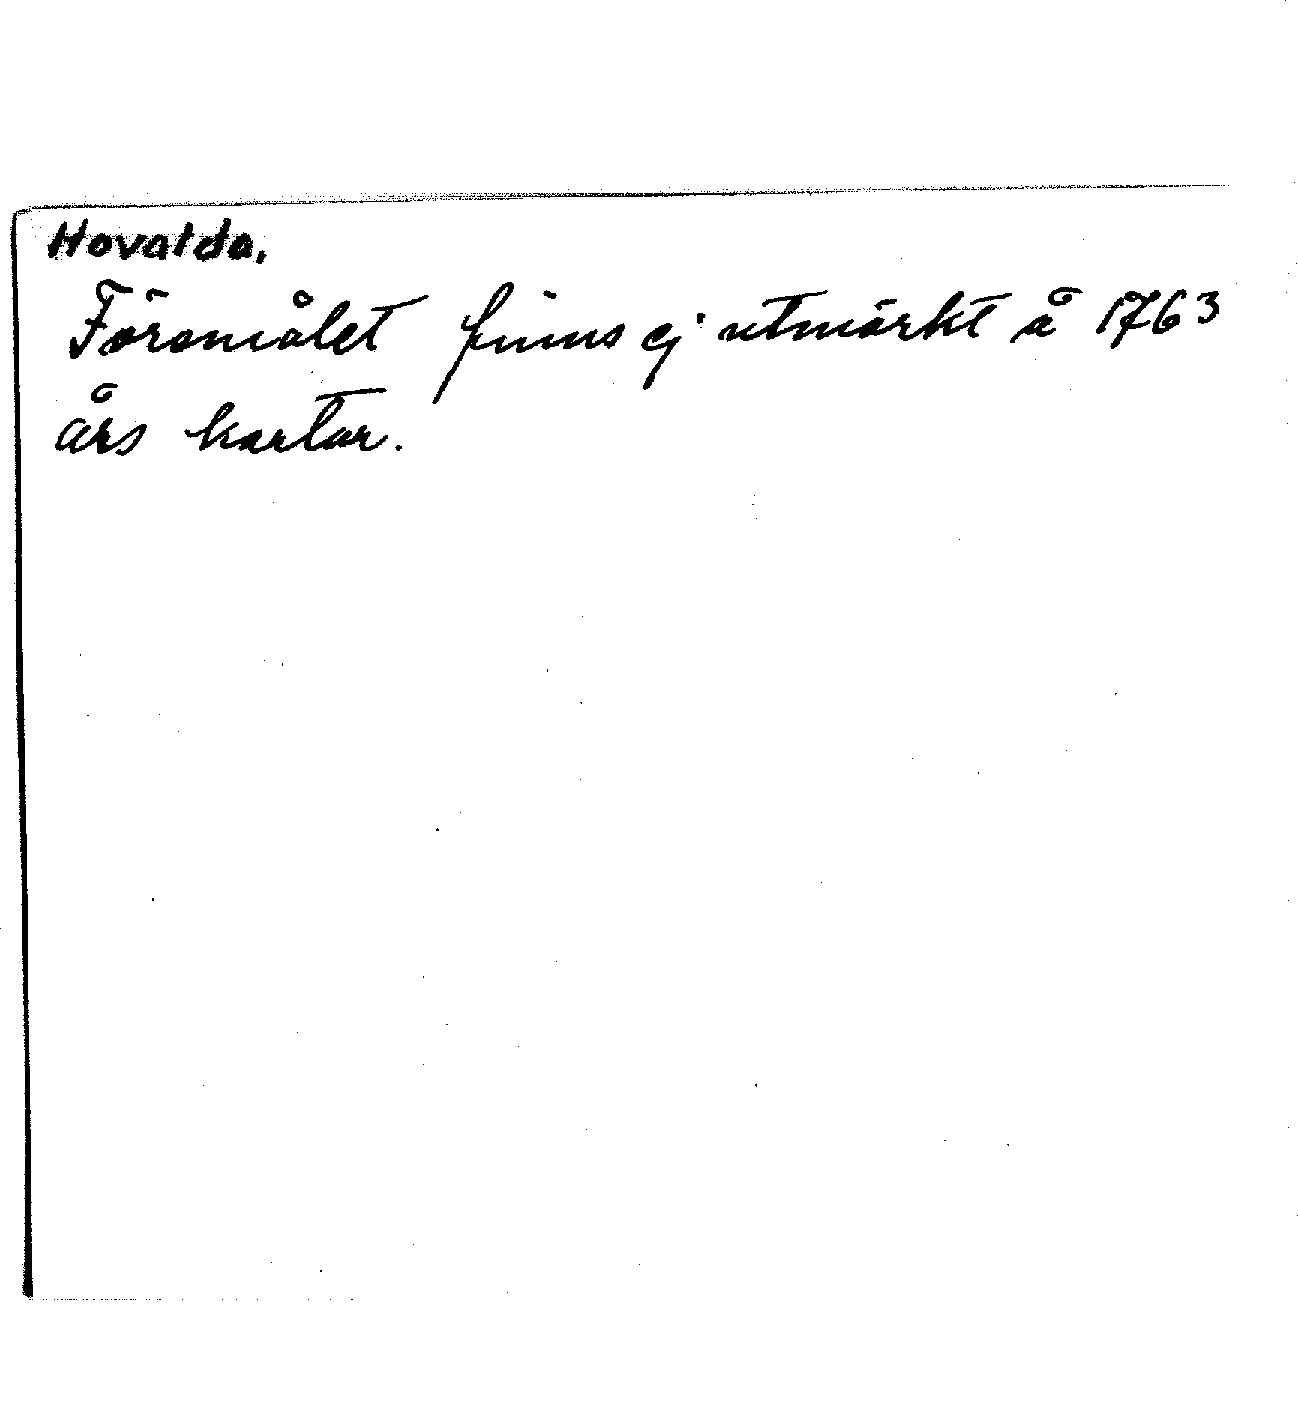 Hovalda.
Föremålet finns ej utmärkt å 1763
års kartor.